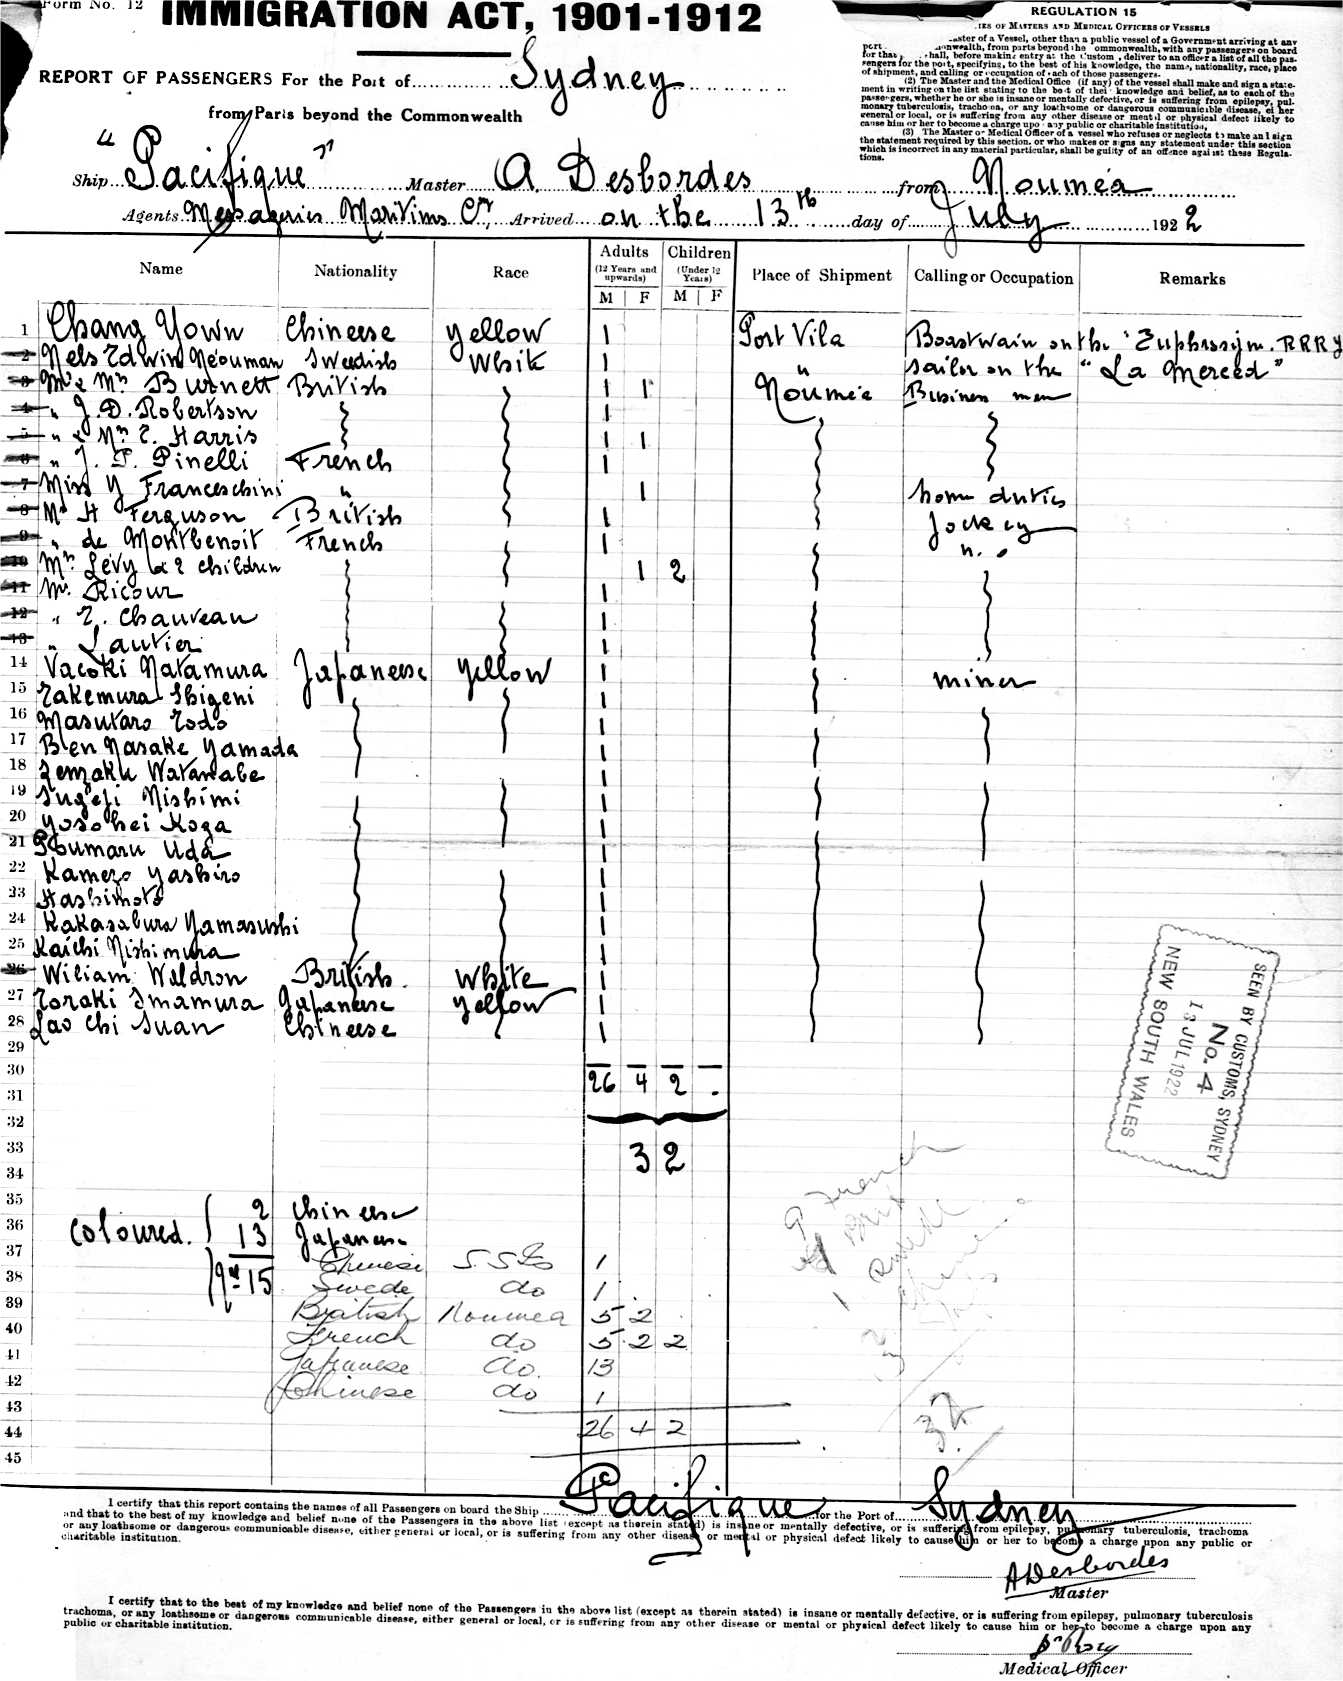 Form No. 12
IMMIGRATION ACT, 1901-1912
REPORT OF PASSENGERS For the Port of Sydney
from Parts beyond the Commonwealth
Ship "Pacifique" Master A Desbordes from Nouméa
Agents Messageries Maritims Cy, Arrived on the 13th day of July 1922
REGULATION 15
OF MASTERS AND MEDICAL OFFICERS OF VESSELS
aster of a Vessel, other than a public vessel of a Government arriving at any
port nwealth, from parts beyond the ommonwealth, with any passengers on board
for that hall, before making entry at the Custom , deliver to an officer a list of all the pas-
sengers for the port, specifying, to the best of his knowledge, the name, nationality, race, place
of shipment, and calling or occupation of each of those passengers.
(2) The Master and the Medical Office (if any) of the vessel shall make and sign a state-
ment in writing on the list stating to the best of their knowledge and belief, as to each of the
passengers, whether he or she is insane or mentally defective, or is suffering from epilepsy, pul-
monary tuberculosis, trachoma, or any loathsome or dangerous communicable disease, either
general or local, or is suffering from any other disease or mental or physical defect likely to
cause him or her to become a charge upon any public or charitable institution.
(3) The Master or Medical Officer of a vessel who refuses or neglects to make and sign
the statement required by this section, or who makes or signs any statement under this section
which is incorrect in any material particular, shall be guilty of an offence against these Regula-
tions.
Name Nationality Race Adults (12 Years and upwards) M F Children (Under 12 Years) M F Place of Shipment Calling or Occupation Remarks
1 Chang Yown Chineese yellow 1 Port Vila Boastwain on the
2 Nels Edwin Neouman Swedish White 1 " sailor on the "La Merced"
3 Mr & Mrs Burnett British 1 1 Nouméa Business men
4 " J.D. Robertson 1
5 " & Mrs E. Harris 1 1
6 " J. P. Pinelli French 1
7 Miss Y Franceschini " 1 home duties
8 Mr H Ferguson British 1 Jockey
9 " de Montbenoit French 1 n.
10 Mrs Lévy & 2 children 1 2
11 Mr. Ricour 1
12 " E. Chauveau 1
13 " Lautier 1
14 Vacoki Natamura Japaneese yellow 1 miner
15 Takemura Shigeni 1
16 Masutaro Todo 1
17 Ben Nasake Yamada 1
18 Zenzaku Watanabe 1
19 Sugeji Nishimi 1
20 Yosohei Koga 1
21 Uda 1
22 Kamezo Yashiro 1
23 Hashimoto 1
24 Kakasaburo Yamasushi 1
25 Kaichi Nishimura 1
26 Wiliam Waldron British White 1
27 Toraki Imamura Japaneese yellow 1
28 Lao Chi Suan Chineese 1
29
30 26 4 2 .
31
32
33 32
34
35 2 Chineese
36 Coloured. 13 Japaneese
37 15 Chinese 1
38 Swede do 1
39 British Noumea 5 2
40 French do 5 2 2
41 Japanese do. 13
42 Chinese do 1
43
44 26 4 2
45
SEEN BY CUSTOMS, SYDNEY
No. 4
13 JUL 1922
NEW SOUTH WALES
I certify that this report contains the names of all Passengers on board the Ship Pacifique for the Port of Sydney
and that to the best of my knowledge and belief none of the Passengers in the above list (except as therein stated) is insane or mentally defective, or is suffering from epilepsy, pulmonary tuberculosis, trachoma
or any loathsome or dangerous communicable disease, either general or local, or is suffering from any other disease or mental or physical defect likely to cause him or her to become a charge upon any public or
charitable institution.
A Desbordes
Master
I certify that to the best of my knowledge and belief none of the Passengers in the above list (except as therein stated) is insane or mentally defective, or is suffering from epilepsy, pulmonary tuberculosis
trachoma, or any loathsome or dangerous communicable disease, either general or local, or is suffering from any other disease or mental or physical defect likely to cause him or her to become a charge upon any
public or charitable institution.
Medical Officer